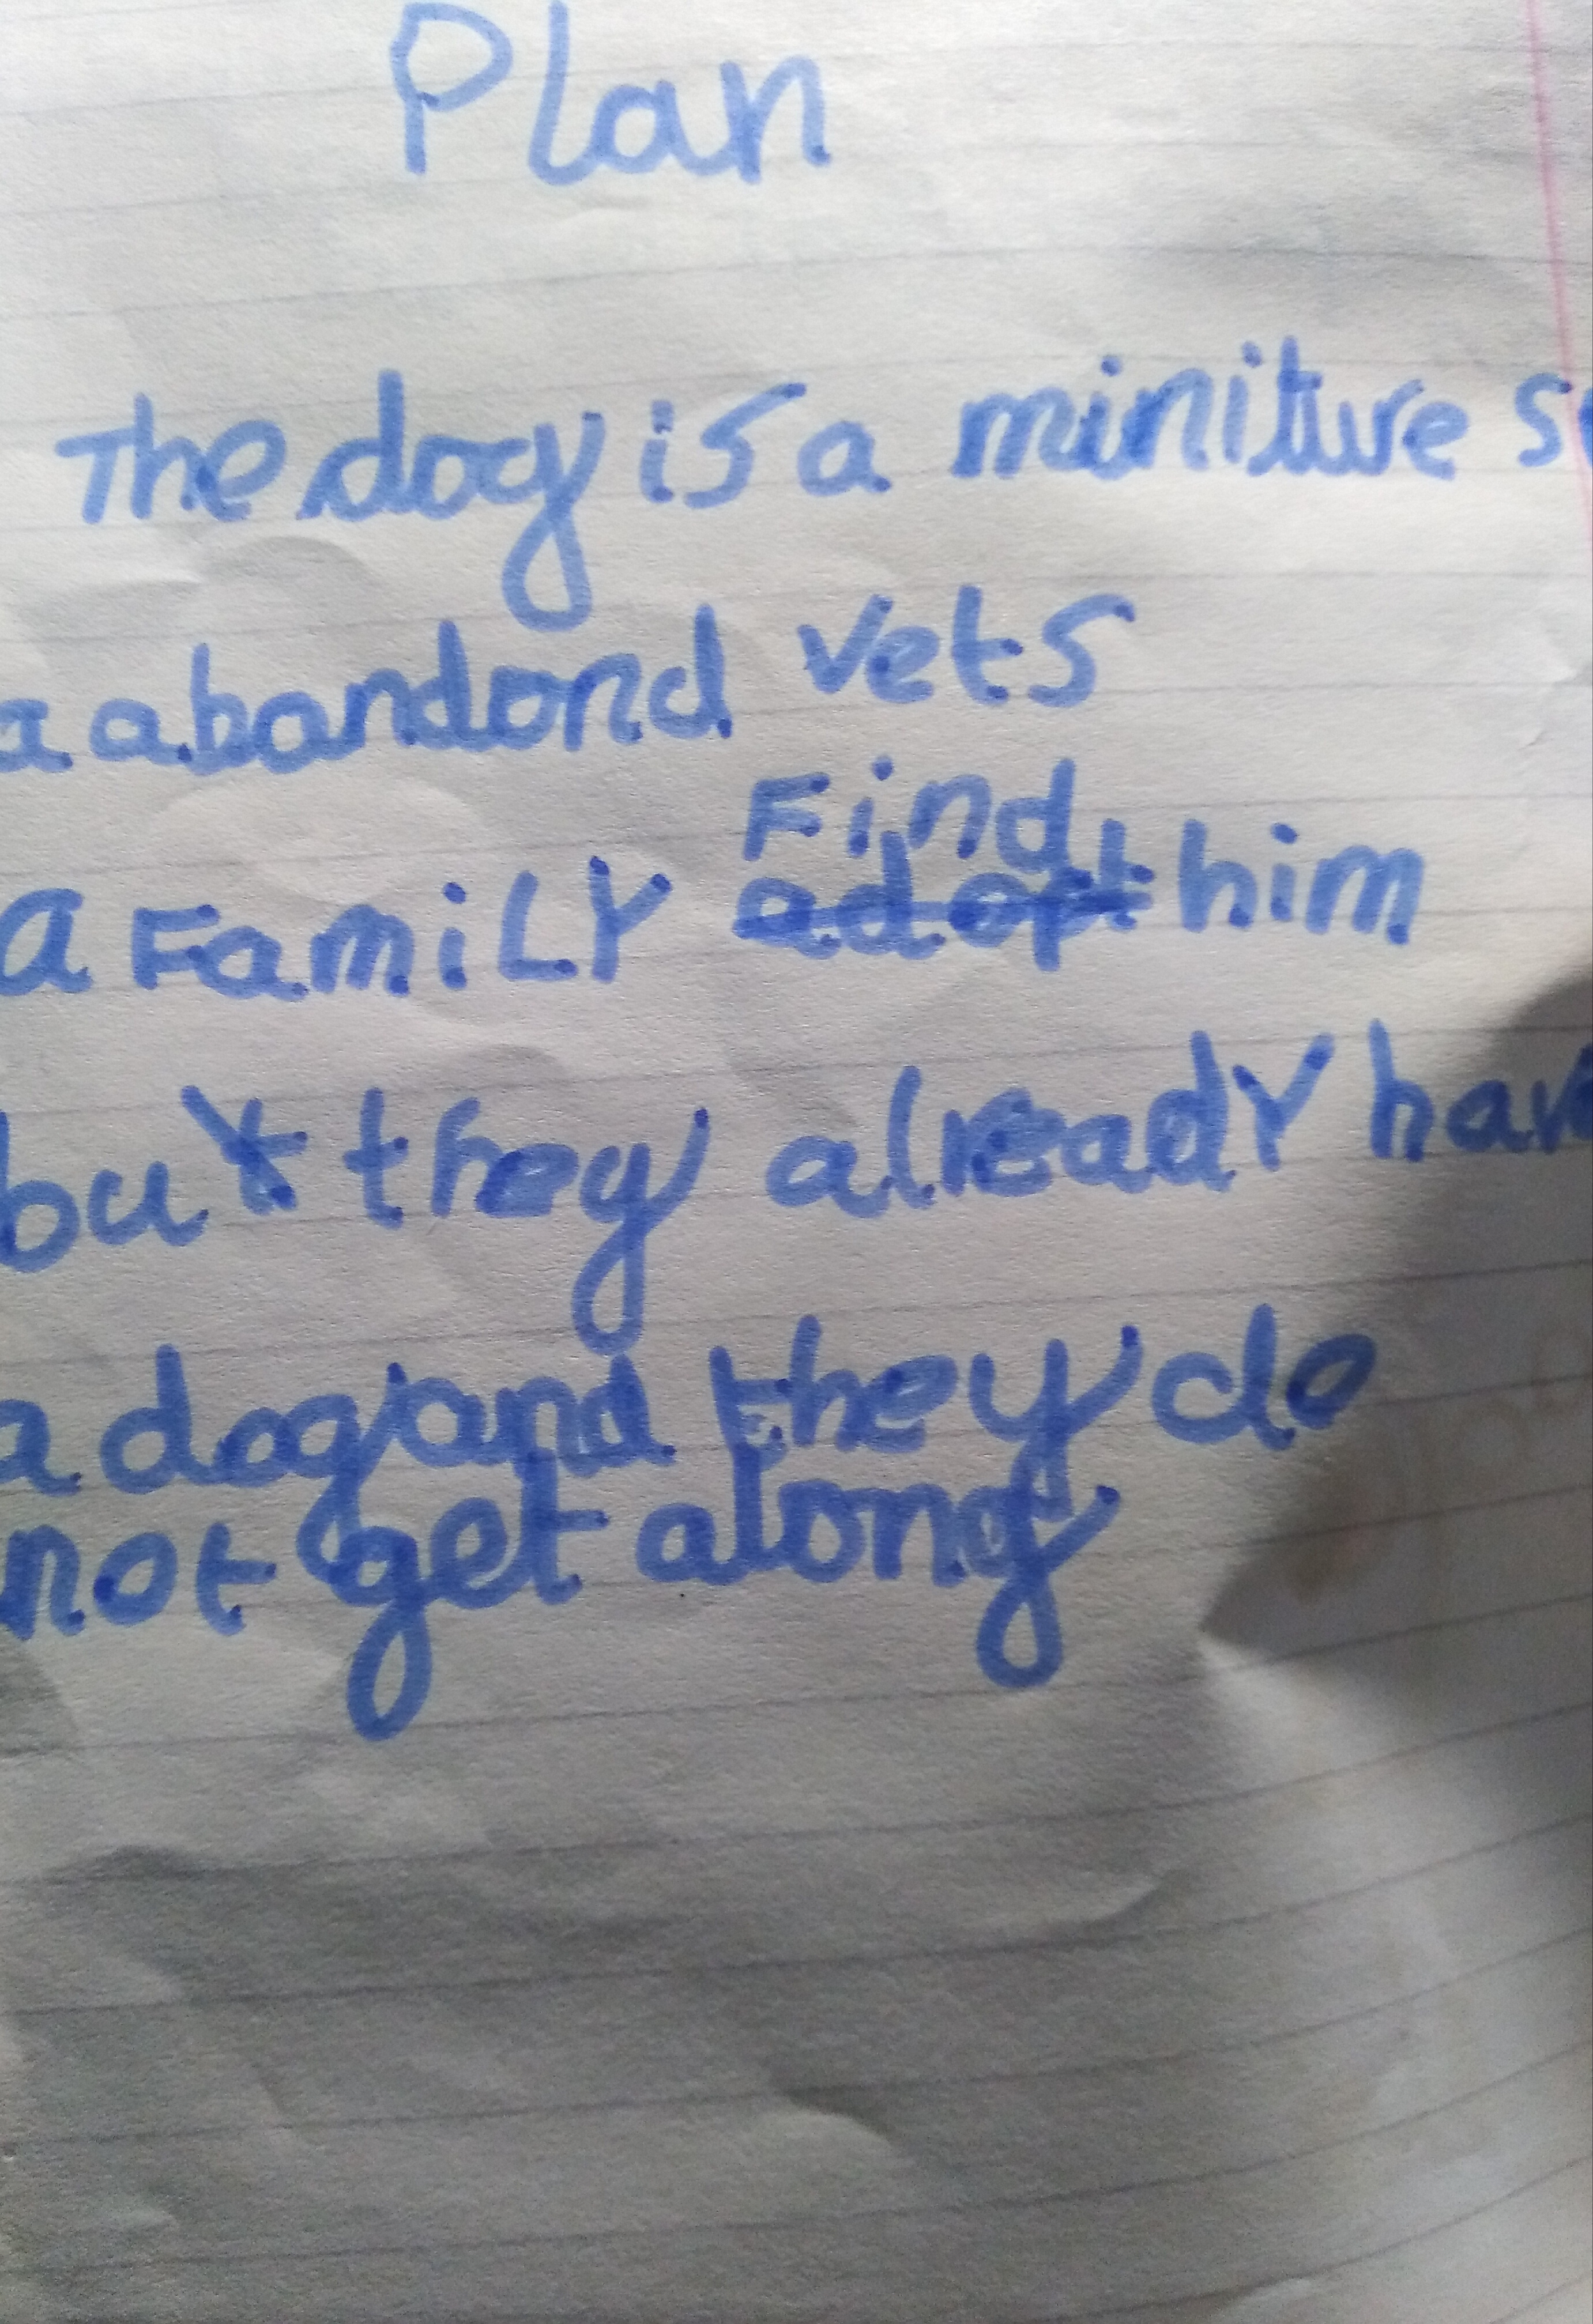 Plan
The dog is a miniture
a abandond vets
Find
a Family adopt him
but they already have
a dog and they do
not get along